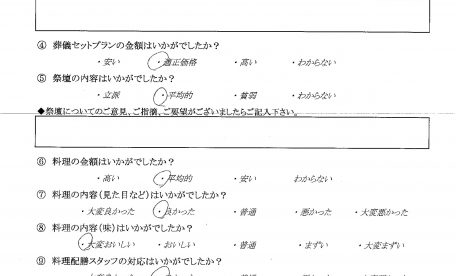 ④ 葬儀セットプランの金額はいかがでしたか？
・安い ・適正価格 ・高い ・わからない
⑤ 祭壇の内容はいかがでしたか？
・立派 ・平均的 ・貧弱 ・わからない
◆祭壇についてのご意見、ご指摘、ご要望がございましたらご記入下さい。
⑥ 料理の金額はいかがでしたか？
・高い ・平均的 ・安い わからない
⑦ 料理の内容（見た目など）はいかがでしたか？
・大変良かった ・良かった ・普通 ・悪かった ・大変悪かった
⑧ 料理の内容（味）はいかがでしたか？
・大変おいしい ・おいしい ・普通 ・まずい ・大変まずい
⑨ 料理配膳スタッフの対応はいかがでしたか？